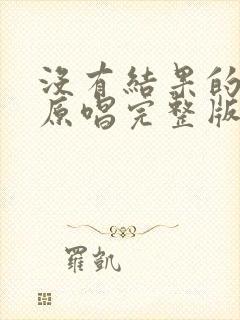 沒有結果的
原唱完整版
羅凱